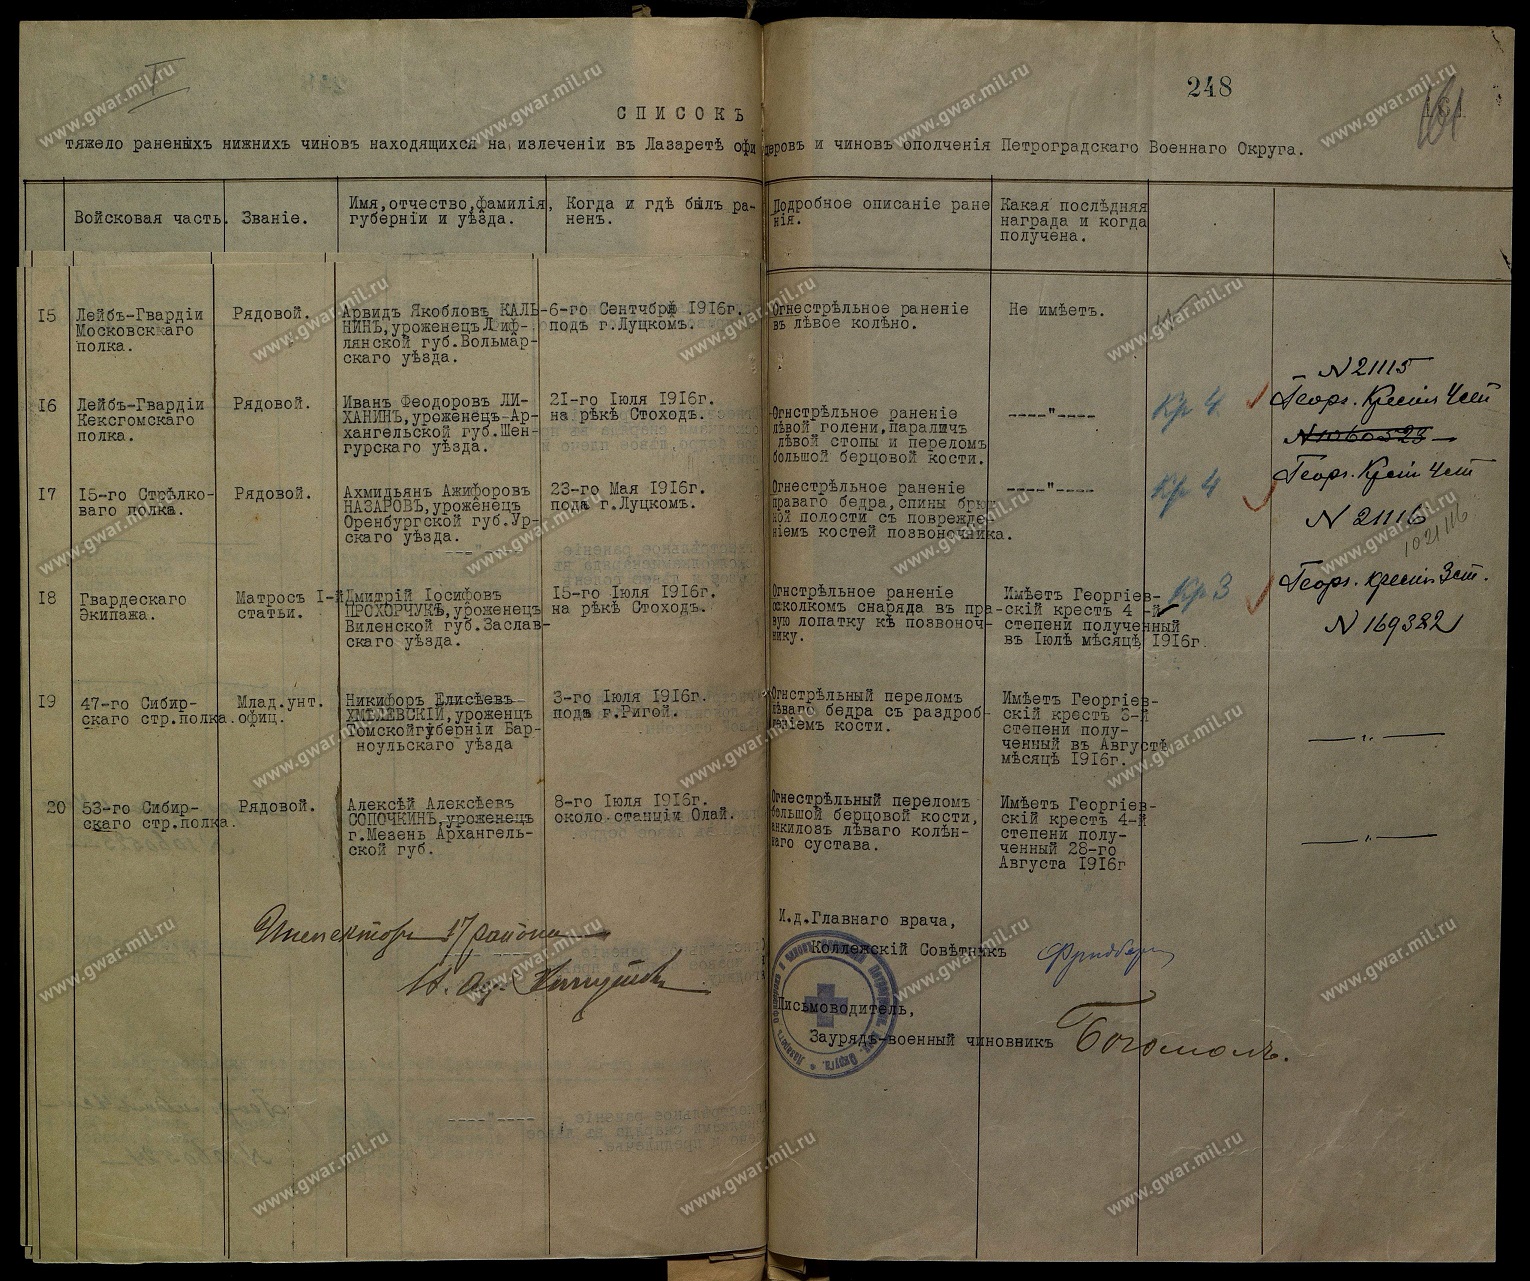 I
248
161
СПИСОКЪ
тяжело раненыхъ нижнихъ чиновъ находящихся на излеченіи въ Лазаретѣ офицеровъ и чиновъ ополченія Петроградскаго Военнаго Округа.
Войсковая часть.
Званіе.
Имя,отчество,фамилія,
губерніи и уѣзда.
Когда и гдѣ былъ ра-
ненъ.
Подробное описаніе ране
нія.
Какая послѣдняя
награда и когда
получена.
I5
Лейбъ-Гвардіи
Московскаго
полка.
Рядовой.
Арвидъ Якобловъ КАЛЬ-
НИНЪ,уроженецъ Лиф-
лянской губ.Вольмар-
скаго уѣзда.
6-го Сентчбря I9I6г.
подъ г.Луцкомъ.
Огнестрѣльное раненіе
въ лѣвое колѣно.
Не имѣетъ.
I6
Лейбъ-Гвардіи
Кексгомскаго
полка.
Рядовой.
Иванъ Феодоровъ ЛИ-
ХАНИНЪ,уроженецъ-Ар-
хангельской губ.Шен-
гурскаго уѣзда.
2I-го Іюля I9I6г.
на рѣкѣ Стоходъ.
Огнстрѣльное раненіе
лѣвой голени,параличъ
лѣвой стопы и переломъ
большой берцовой кости.
----"----
Кр 4
N 21115
Георг. Крестъ 4 ст
N 1060523
I7
I5-го Стрѣлко-
ваго полка.
Рядовой.
Ахмидьянъ Ажифоровъ
НАЗАРОВЪ,уроженецъ
Оренбургской губ.Ур-
скаго уѣзда.
----"----
23-го Мая I9I6г.
пода г.Луцкомъ.
Огнестрѣльное раненіе
праваго бедра,спины брюш
ной полости съ поврежде-
ніемъ костей позвоночника.
----"----
Кр 4
Георг. Крестъ 4 ст
N 21116
1021116
I8
Гвардескаго
Экипажа.
Матросъ I-й
статьи.
Дмитрій Іосифовъ
ПРОХОРЧУКЪ,уроженецъ
Виленской губ.Заслав-
скаго уѣзда.
I5-го Іюля I9I6г.
на рѣкѣ Стоходъ.
Огнстрѣльное раненіе
осколкомъ снаряда въ пра-
вую лопатку къ позвоноч-
нику.
Имѣетъ Георгіев-
скій крестъ 4 -й
степени полученный
въ Іюлѣ мѣсяцѣ I9I6г.
Кр 3
Георг. крестъ 3 ст.
N 169382
I9
47-го Сибир-
скаго стр.полка.
Млад.унт.
офиц.
Никифоръ Елисѣевъ
ХМѢЛЕВСКІЙ,уроженцъ
Томскойгуберніи Бар-
ноульскаго уѣзда
3-го Іюля I9I6г.
подъ г.Ригой.
Огнстрѣльный переломъ
лѣваго бедра съ раздроб-
леніемъ кости.
Имѣетъ Георгіев-
скій крестъ 3-й
степени полу-
ченный въ Августѣ
мѣсяцѣ I9I6г.
— " —
20
53-го Сибир-
скаго стр.полка.
Рядовой.
Алексѣй Алексѣевъ
СОПОЧКИНЪ,уроженецъ
г.Мезень Архангель-
ской губ.
8-го Іюля I9I6г.
около станціи Олай.
Огнестрѣльный переломъ
большой берцовой кости,
анкилозъ лѣваго колѣн-
наго сустава.
Имѣетъ Георгіев-
скій крестъ 4-й
степени полу-
ченный 28-го
Августа I9I6г
— " —
Инспекторъ 17 района
И.д.Главнаго врача,
Коллежскій Совѣтникъ
Письмоводитель,
Заурядъ-военный чиновникъ Богомолъ.
----"----
www.gwar.mil.ru